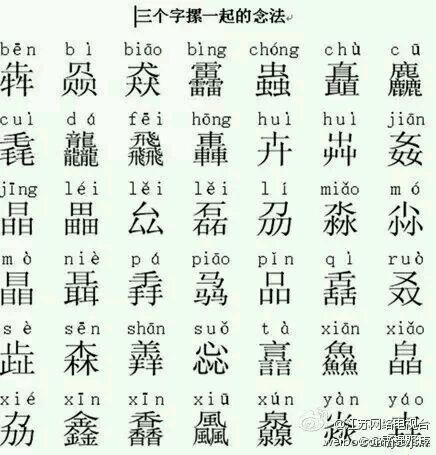 三个字摞一起的念法
bēn bì biāo bìng chóng chù cū
犇 赑 猋 靐 蟲 矗 麤
cuì dá fēi hōng huì huì jiān
毳 龘 飝 轟 卉 芔 姦
jīng léi lěi lěi lí miǎo mó
晶 畾 厽 磊 刕 淼 尛
mò niè pá piāo pǐn qì ruò
瞐 聶 掱 骉 品 舙 叒
sè sēn shān suǒ tà xiān xiǎo
歮 森 羴 惢 譶 鱻 皛
xié xīn xīn xiū xún yàn yáo
劦 鑫 馫 飍 灥 焱 垚
@江苏网络电视台